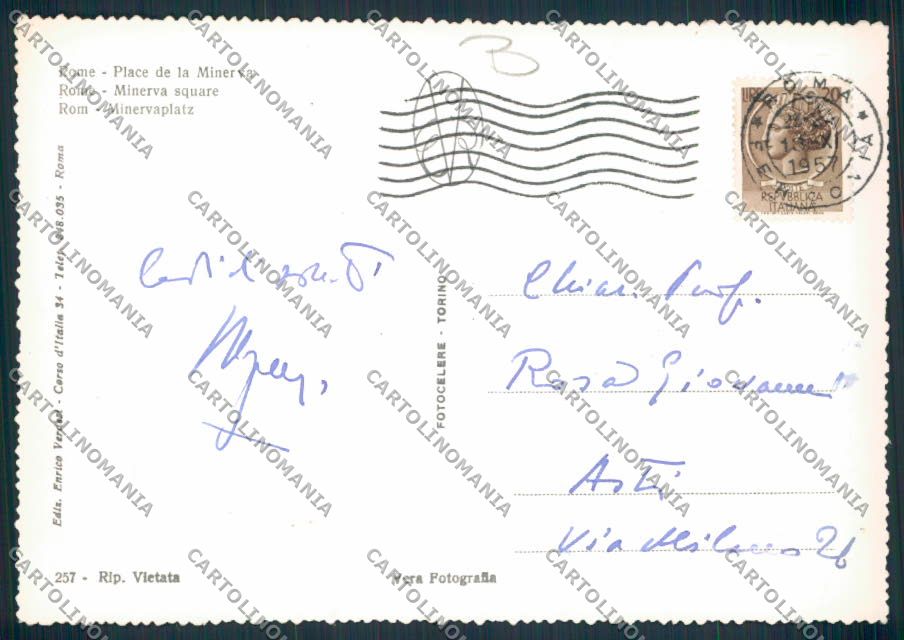 Rome - Place de la Minerva
Rome - Minerva square
Rom - Minervaplatz
B
ROMA
1957
LIRE 20
POSTE
REPVBBLICA
ITALIANA
Ediz. Enrico Verdesi - Corso d'Italia 34 - Telef. 848.035 - Roma
FOTOCELERE - TORINO
Cordiali saluti
Chiar. Prof.
Rosa Giovanni
Asti
Via Milano 26
257 - Rip. Vietata
Vera Fotografia
CARTOLINOMANIA